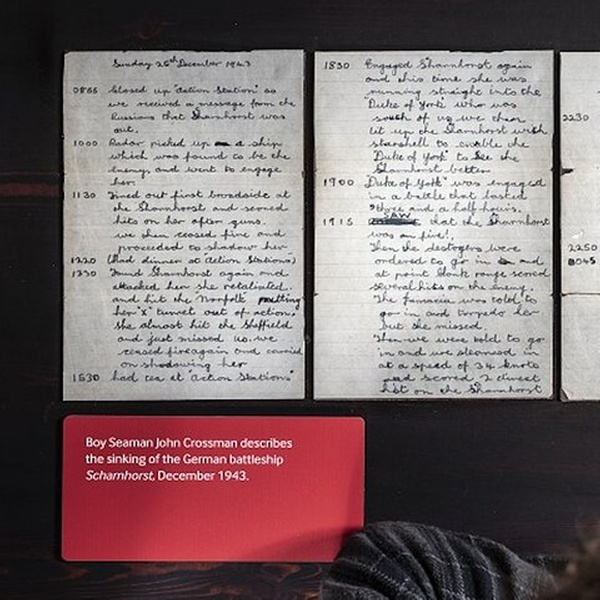 Sunday 26th December 1943
0855 Closed up 'action Station' as
we received a message from the
Russians that Sharnhorst was
out.
1000 Radar picked up a ship
which was found to be the
enemy, and went to engage
her.
1130 Fired out first broadside at
the Sharnhorst and scored
hits on her after guns.
we then ceased fire and
proceeded to shadow her
1220 (Had dinner at Action Stations)
1230 Found Sharnhorst again and
attacked her she retaliated.
and hit the Norfolk putting
her 'X' turret out of action.
She almost hit the Sheffield
and just missed us. we
ceased fire again and carried
on shadowing her
1530 had tea at 'Action Stations'
1830 Engaged Sharnhorst again
and this time she was
running straight into the
Duke of York who was
south of us, we then
lit up the Sharnhorst with
starshell to enable the
'Duke of York' to see the
Sharnhorst better
1900 'Duke of York' was engaged
in a battle that lasted
three and a half hours.
1915 SAW that the Sharnhorst
was on fire!.
Then the destoyers were
ordered to go in and
at point blank range scored
several hits on the enemy.
The Jamacia was told to
go in and torpedo her
but she missed.
Then we were told to go
in and we steamed in
at a speed of 34 knots
and scored 2 direct
hit on the Sharnhorst
2230
2250
0045
Boy Seaman John Crossman describes
the sinking of the German battleship
Scharnhorst, December 1943.